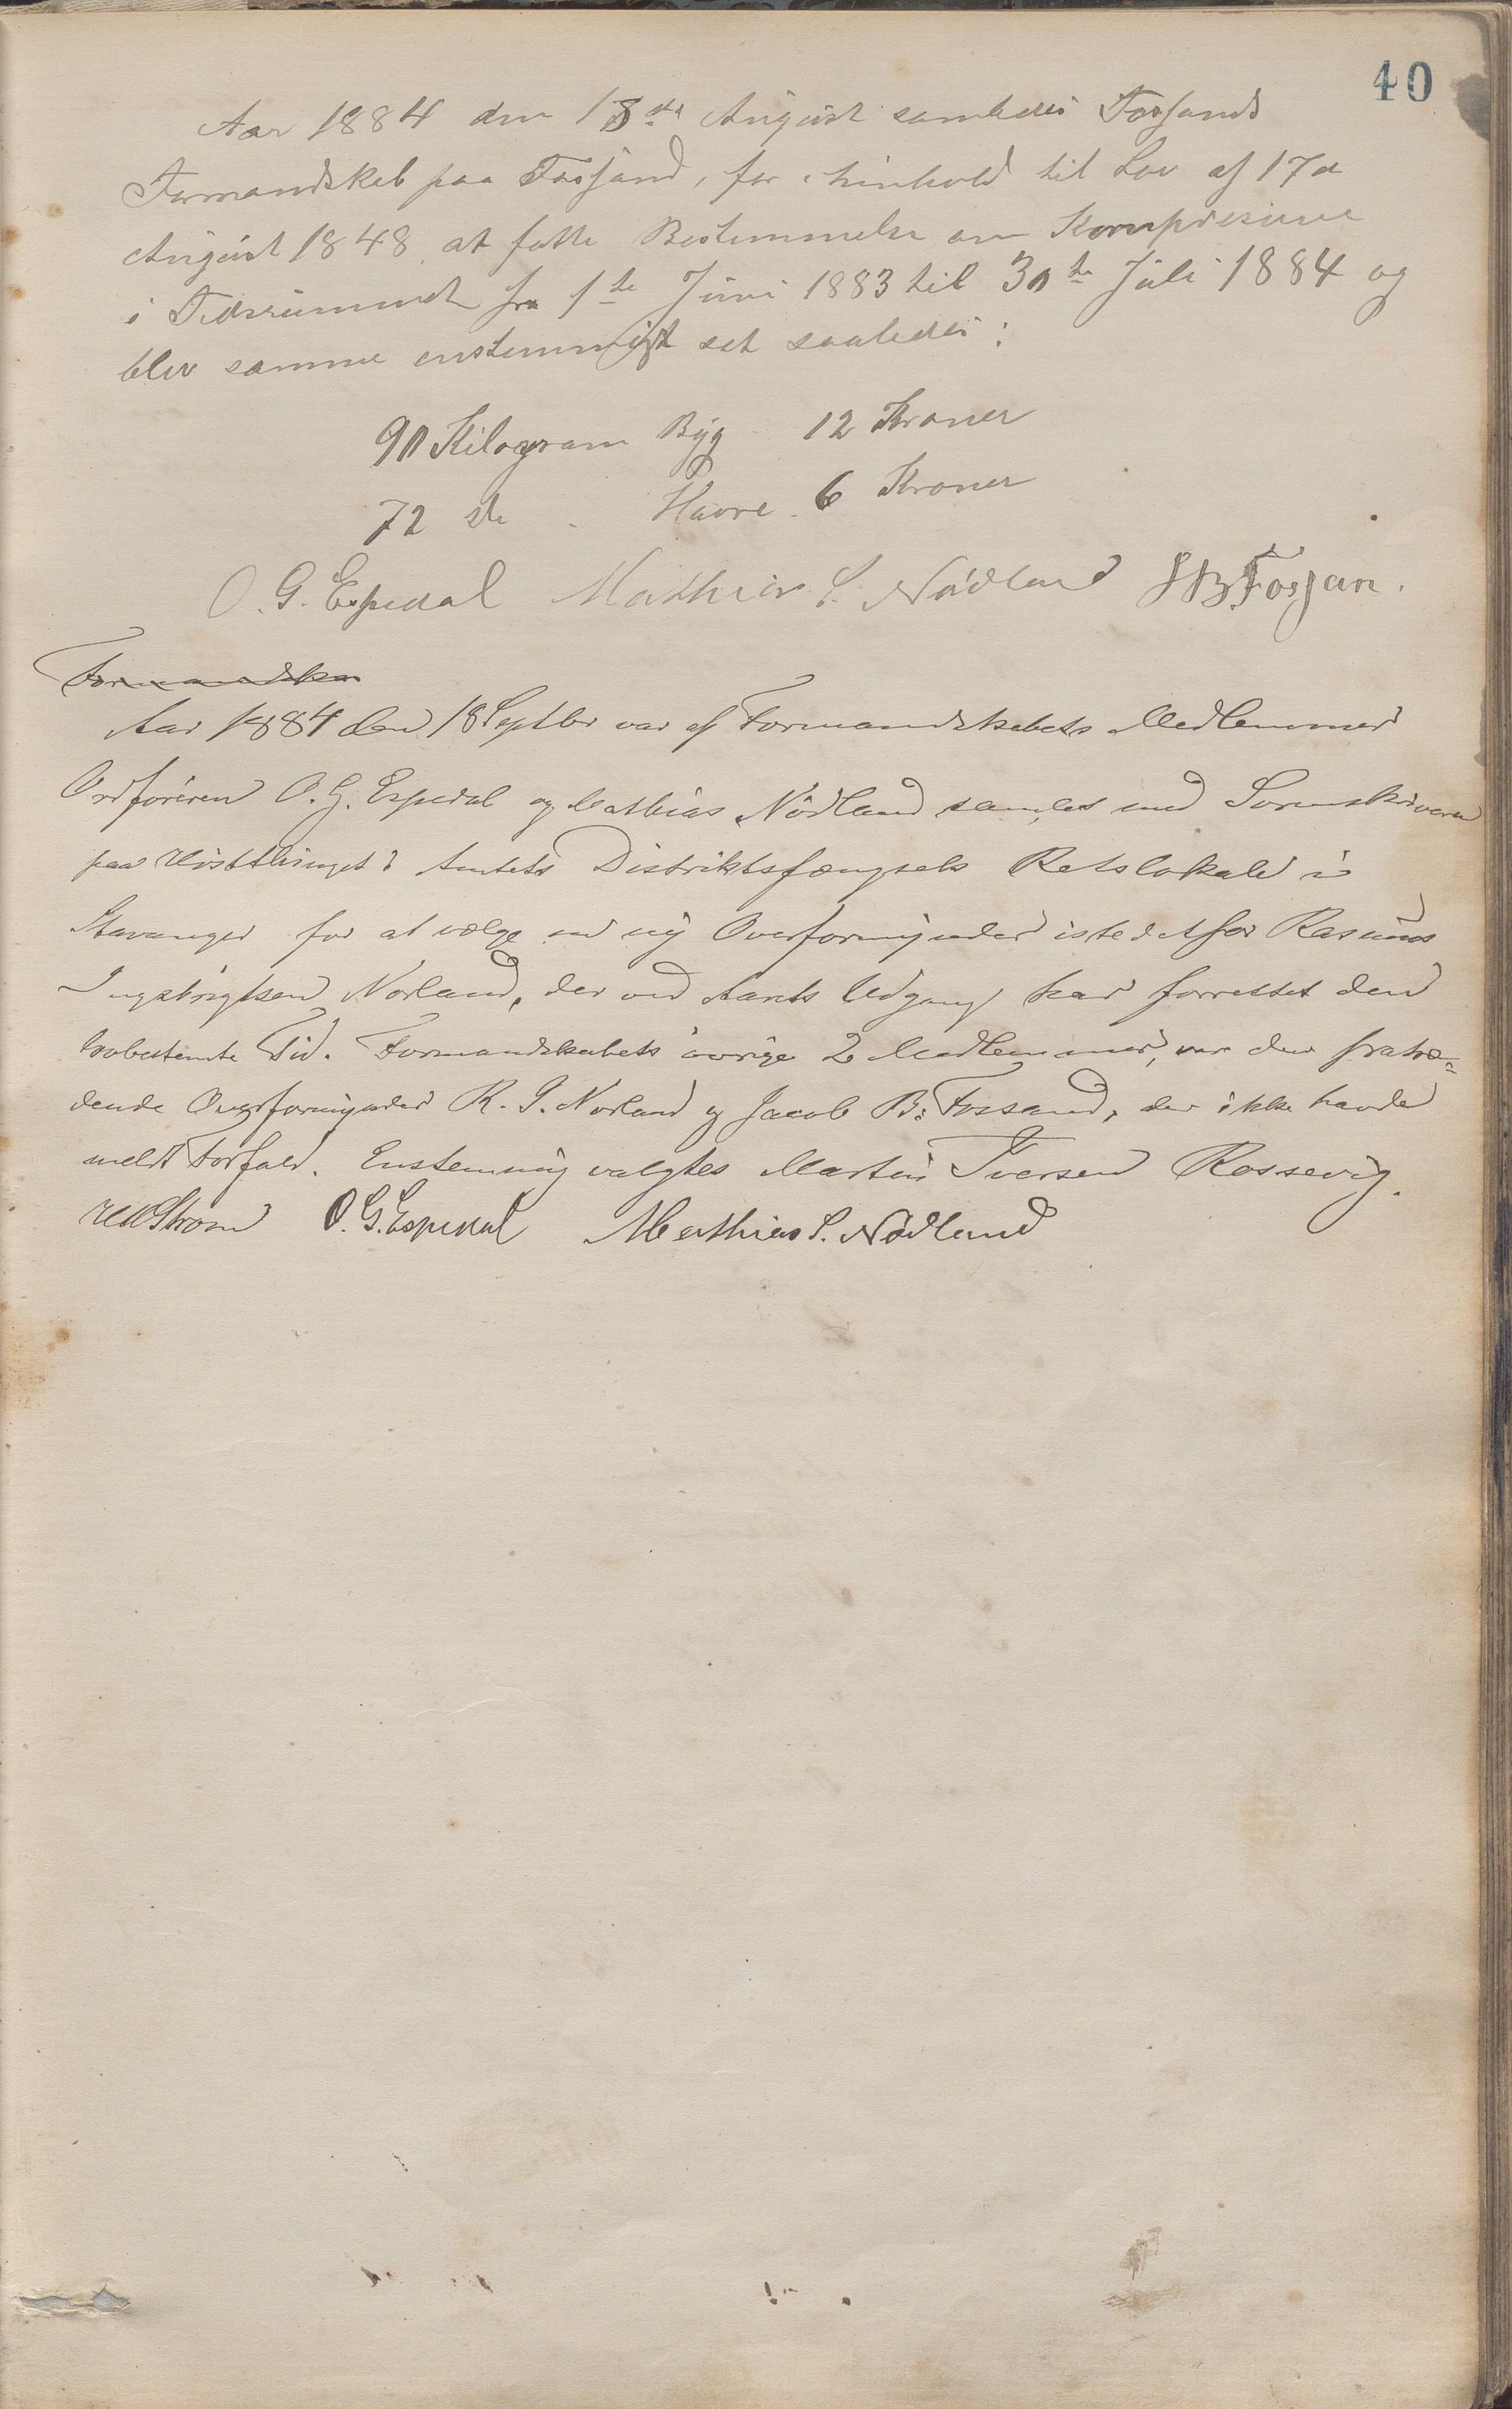 40
Aar 1884 den 18de August samledes Fossands
Formandskab paa Fossand, for i hinhold til Lov af 17de
August 1848 at fatte Bestemmelse om Kornpriserne
i Tidsrummet fra 1ste Juni 1883 til 30te Juli 1884 og
blev samme enstemmigt sat saaledes:
90 Kilogram Byg 12 Kroner
72 do Havre 6 Kroner
O. G. Espedal Mathias S. Nödland JBFossan.
Formandska
Aar 1884 den 18 Septbr var af Formandskabets Medlemmer
Ordföreren O. G. Espedal og Mathias Nödland samlet med Sorenskriveren
paa Høstthinget i Amtets Distriktsfængsels Retslokale i
Stavanger for at vælge en ny Overformynder istedetfor Rasmus
Ingebrigtsen Norland, der ved Aarets Udgang har forrettet den
lovbestemte Tid. Formandskabets övrige 2 Medlemmer, var den fratræ-
dende Overformynder R. I. Norland og Jacob B. Fossand, der ikke havde
meldt Forfald. Enstemmig valgtes Martin Iversen Rossevig.
Strom O. G. Espedal Mathias S. Nödland